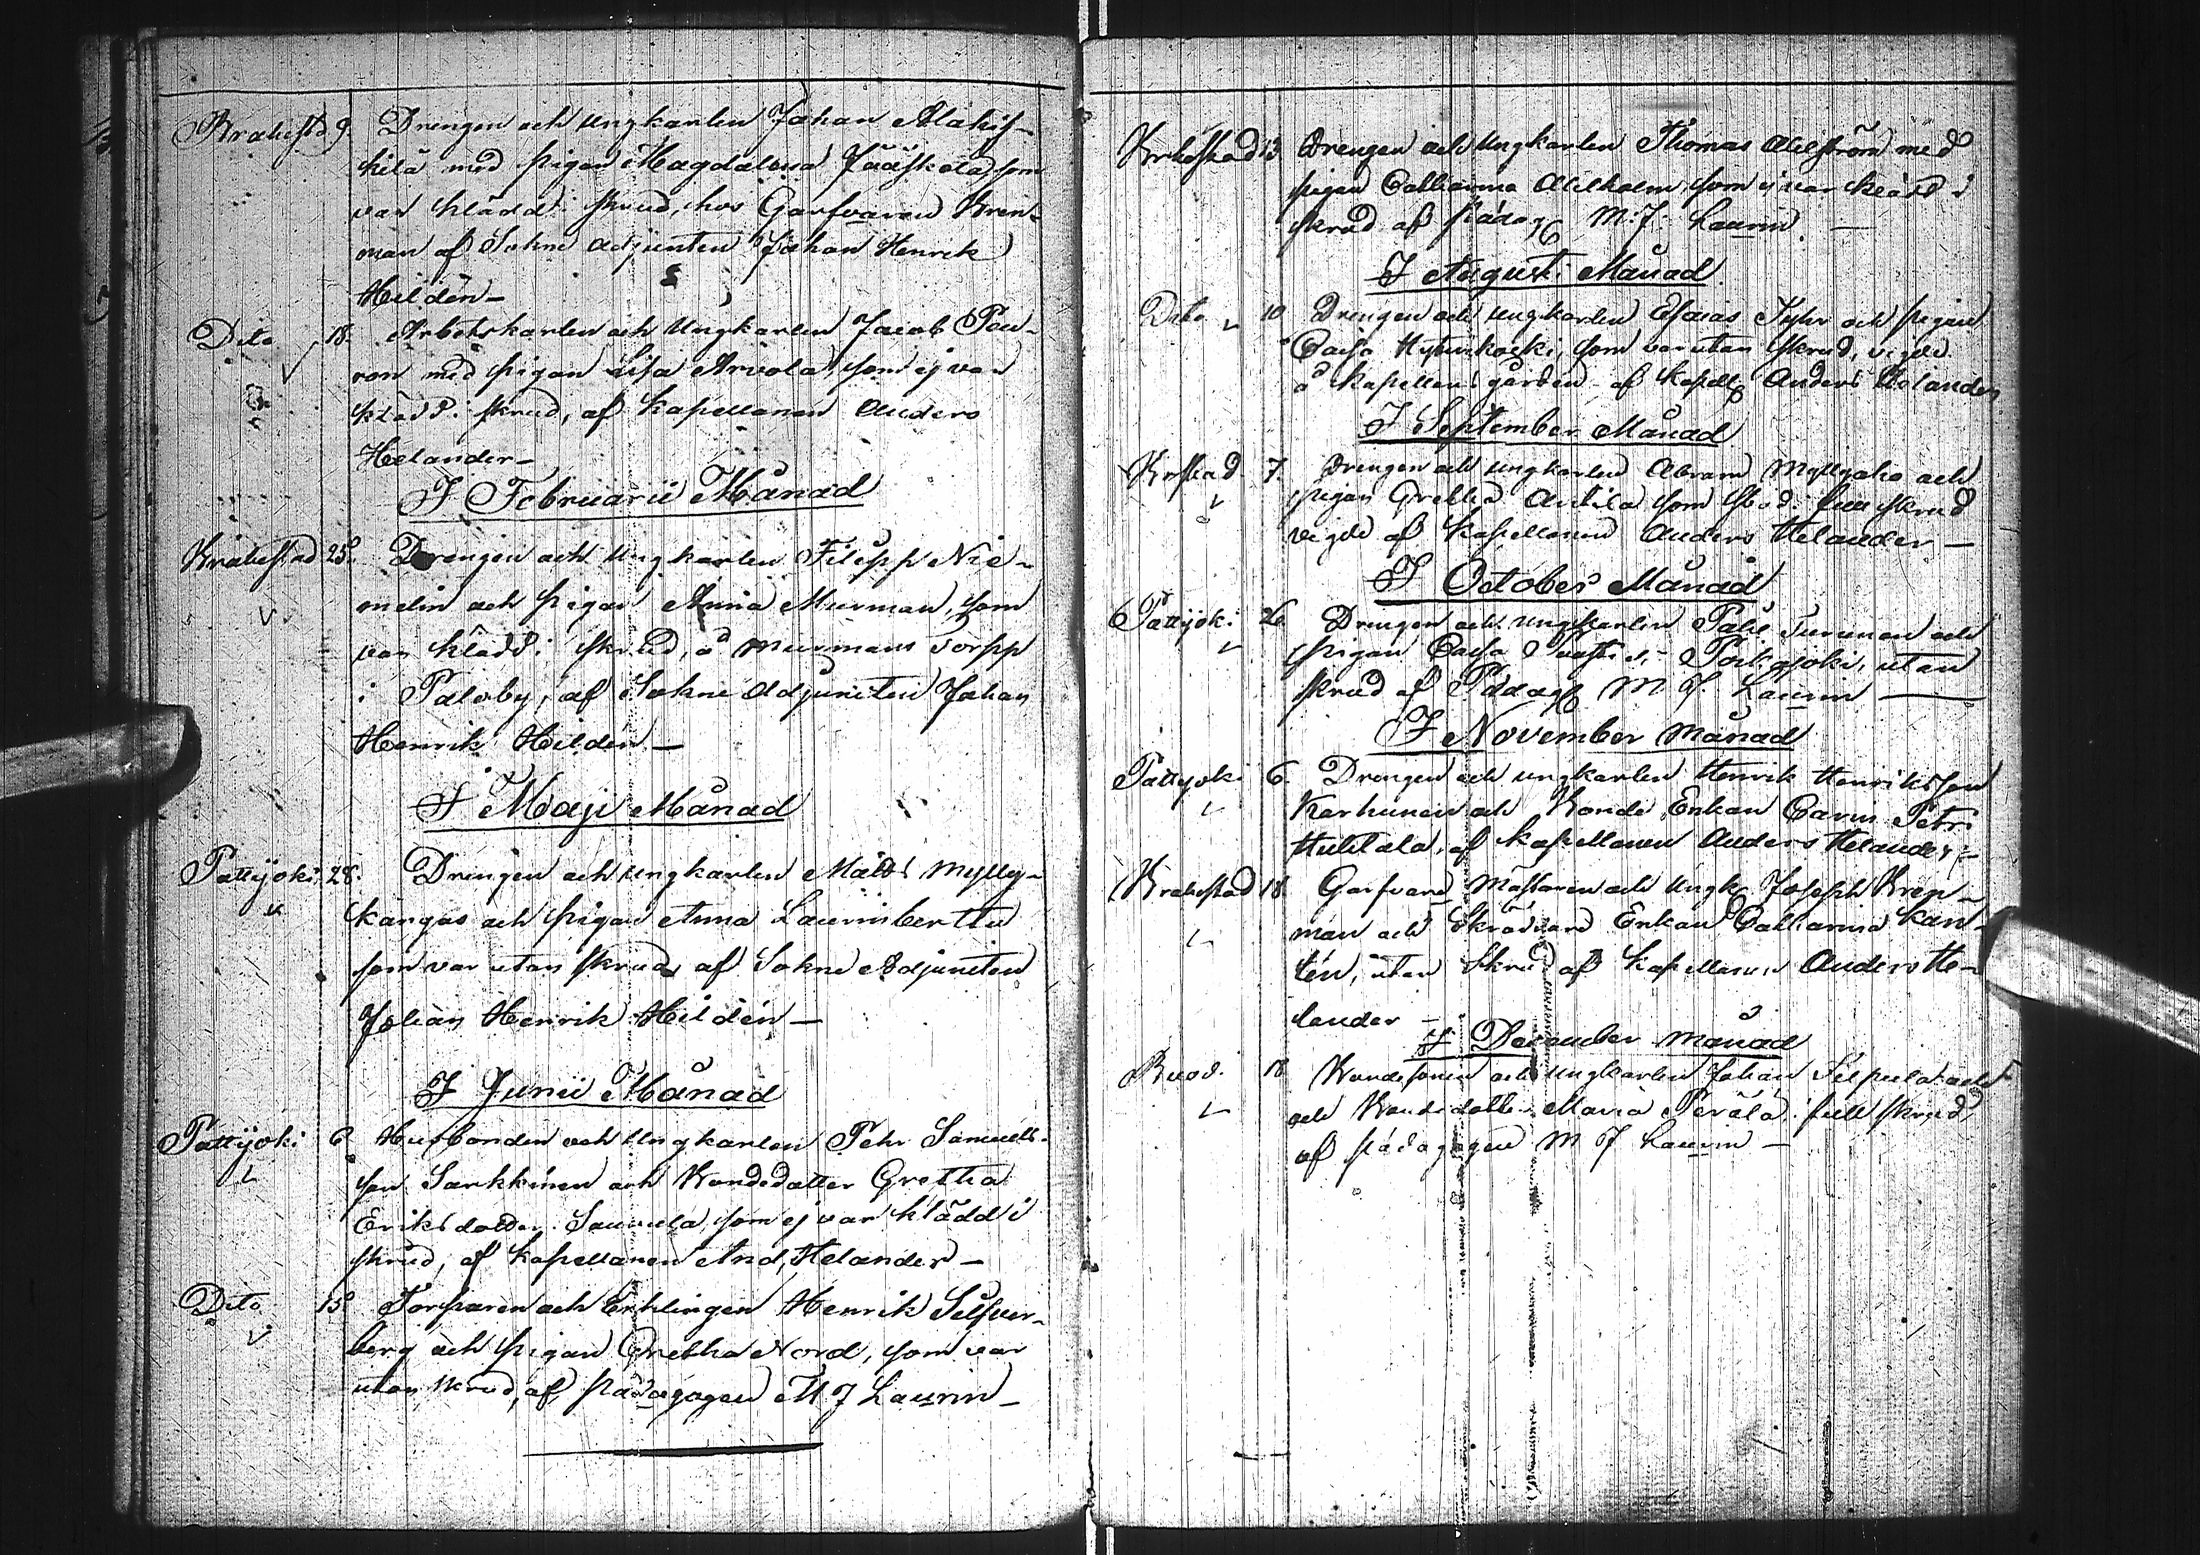 Brahestd 9. Drengen och Ungkarlen Johan Alahis-
kilä med pigan Magdalena Jääskelä, som
var klädd i skrud, hos Garfvaren Kren-
man af Sokne Adjuncten Johan Henrik
Hildén—
Dito 18. Arbetskarlen och Ungkarlen Jacob Pou-
ron med pigan Lisa Arvola, som ej var
klädd i skrud, af Kapellanen Anders
Helander—
I Februarii Månad
Brahestad 25. Drengen och Ungkarlen Filipp Nie-
melin och pigan Anna Murman, som
var klädd i skrud, å Murmans Torpp
i Paloby, af Sokne Adjuncten Johan
Henrik Hildén—
I Maji Månad
Pattijoki 28. Drengen och Ungkarlen Matts Mylly-
kangas och pigan Anna Laurinberttu
som var utan skrud, af Sokne Adjuncten
Johan Henrik Hildén—
I Junii Månad
Pattijoki 6. Husbonden och Ungkarlen Pehr Samuels-
son Sarkkinen och Bondedotter Gretha
Eriksdotter Sauvula, som ej var klädd i
skrud, af Kapellanen And, Helander—
Dito 15. Torparen och Enklingen Henrik Silfver-
berg och pigan Gretha Nord, som var
utan skrud, af Pädagogen M J Laurin—
Brahestad 13 Drengen och Ungkarlen Thomas Ahlström med
pigan Catharina Ahlholm, som ej var klädd i
skrud af Pädag M: J: Laurin. —
I Augusti Månad
Dito 10 Drengen och Ungkarlen Esaias Juhr och pigan
Caisa som var utan skrud, vigde
å Kapellans gården af Kapell Anders Helander
I September Månad
Brstad 7. Drengen och Ungkarlen Abram Myllyaho och
pigan Gretha Antila som stod i full skrud
vigde af Kapellanen Anders Helander—
I October Månad
Pattijoki 26. Drengen och Ungkarlen Påhl Turunen och
pigan Caisa utan
skrud af Pädag M J. Laurin —
I November Månad
Pattijoki 6. Drengen och Ungkarlen Henrik Henriksson
Karhunen och Bonde Enkan Carin Petri
Huhtala, af Kapellanen Anders Helander—
Brahestad 18 Garfvare Mästaren och Ungk Joseph Kren-
man och Skräddare Enkan Catharina Kan-
tén, utan Skrud af Kapellanen Anders He-
lander —
I December Månad
Ruod. 18 Bondesonen och Ungkarlen Johan Silpula och
och Bondedotter Maria Perälä i full skrud
af Pädagogen M J Laurin —